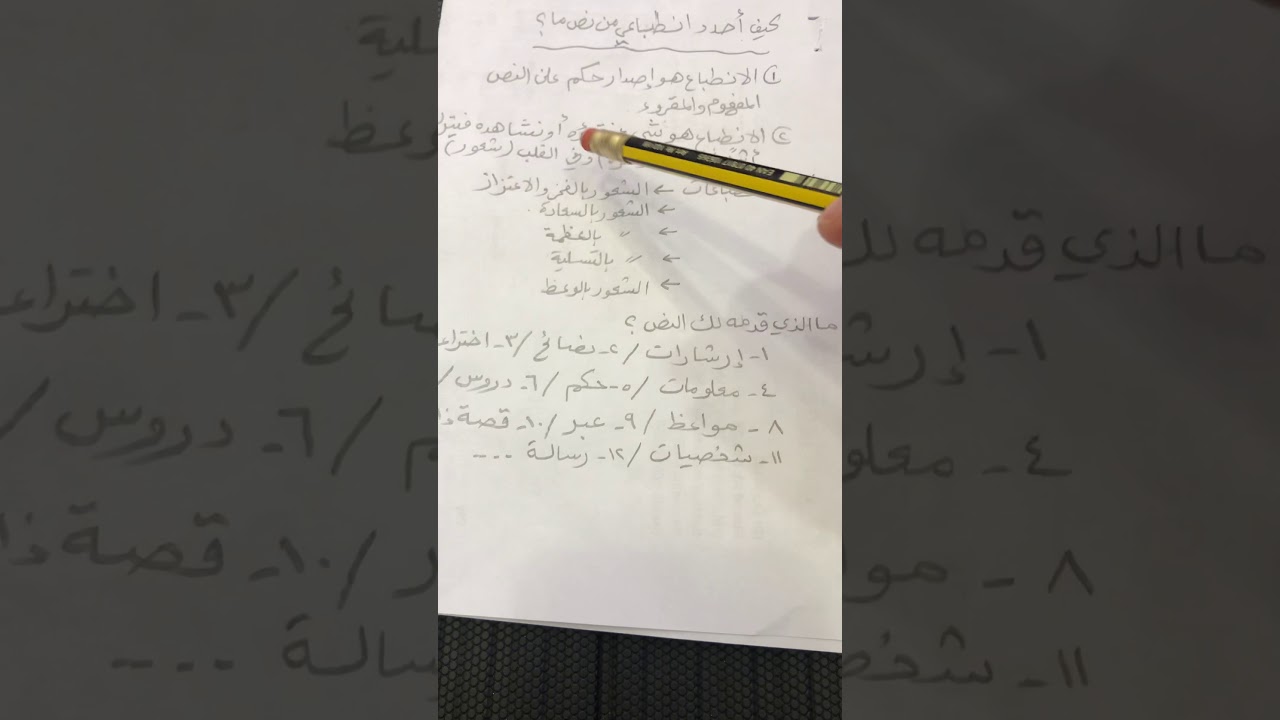 كيف أحدد انطباعي من نص ما؟
① الانطباع هو إصدار حكم على النص
المفهوم والمقروء
② الانطباع هو شيء أو نشاهده فيترك
وفي القلب (شعور)
← الشعور بالفخر والاعتزاز
← الشعور بالسعادة
← " بالعظمة
← " بالتسلية
← الشعور بالوعظ
ما الذي قدمه لك النص؟
١- إرشارات / ٢- نصائح / ٣- اختراع
٤- معلومات / ٥- حكم / ٦- دروس /
٨- مواعظ / ٩- عبر / ١٠- قصة
١١- شخصيات / ١٢- رسالة ...